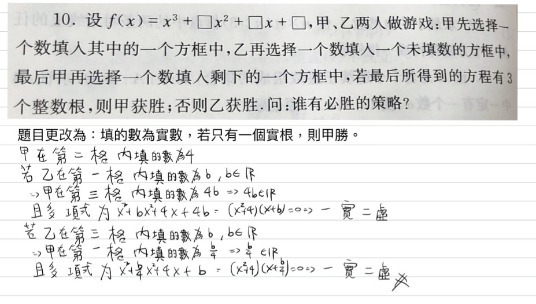 10. 设 f(x)=x³+□x²+□x+□,甲、乙两人做游戏:甲先选择一
个数填入其中的一个方框中,乙再选择一个数填入一个未填数的方框中,
最后甲再选择一个数填入剩下的一个方框中,若最后所得到的方程有3
个整数根,则甲获胜;否则乙获胜.问:谁有必胜的策略?
題目更改為:填的數為實數,若只有一個實根,則甲勝。
甲在第二格 內填的數為4
若 乙在第一格 內填的數為b , b∈ℝ
→甲在第三格 內填的數為 4b => 4b∈ℝ
且多項式 為 x³+bx²+4x+4b = (x²+4)(x+b)=0 => 一實二虛
若 乙在第三格 內填的數為b , b∈ℝ
→甲在第一格 內填的數為 b/4 => b/4 ∈ℝ
且多項式 為 x³+b/4x²+4x+b = (x²+4)(x+b/4)=0 => 一實二虛